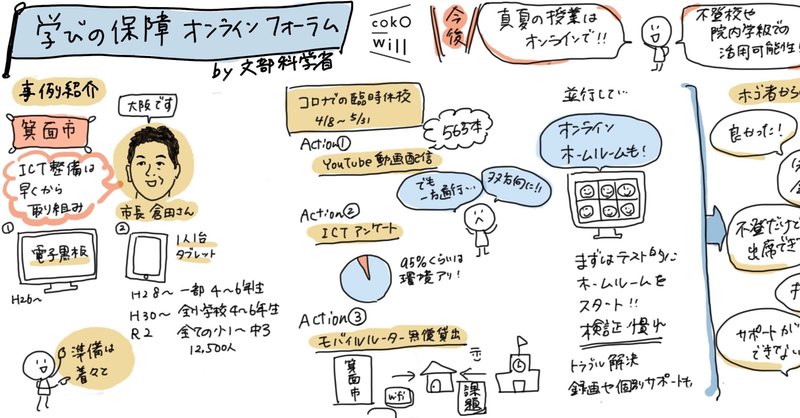 学びの保障 オンライン フォーラム
by 文部科学省
cokO
will
今後
真夏の授業は
オンラインで!!
不登校や
院内学級での
活用可能性!
事例紹介
箕面市
大阪です
ICT整備は
早くから
取り組み
市長 倉田さん
①
電子黒板
H26〜
②
1人1台
タブレット
H28〜 一部 4〜6年生
H30〜 全小学校 4〜6年生
R2 全ての小1〜中3
12,500人
準備は
着々で
コロナでの臨時休校
4/8〜5/31
Action①
YouTube動画配信
563本
でも
一方通行…
双方向に!!
Action②
ICT アンケート
95%くらいは
環境アリ!
Action③
モバイルルーター無償貸出
箕面市
wifi
課題
並行して…
オンライン
ホームルームも!
まずはテスト的に
ホームルームを
スタート!!
検証・慣れ
トラブル解決
録画や個別サポートも
ホゴ者から
良かった!
不登だけど
出席でき
サポートが
できない